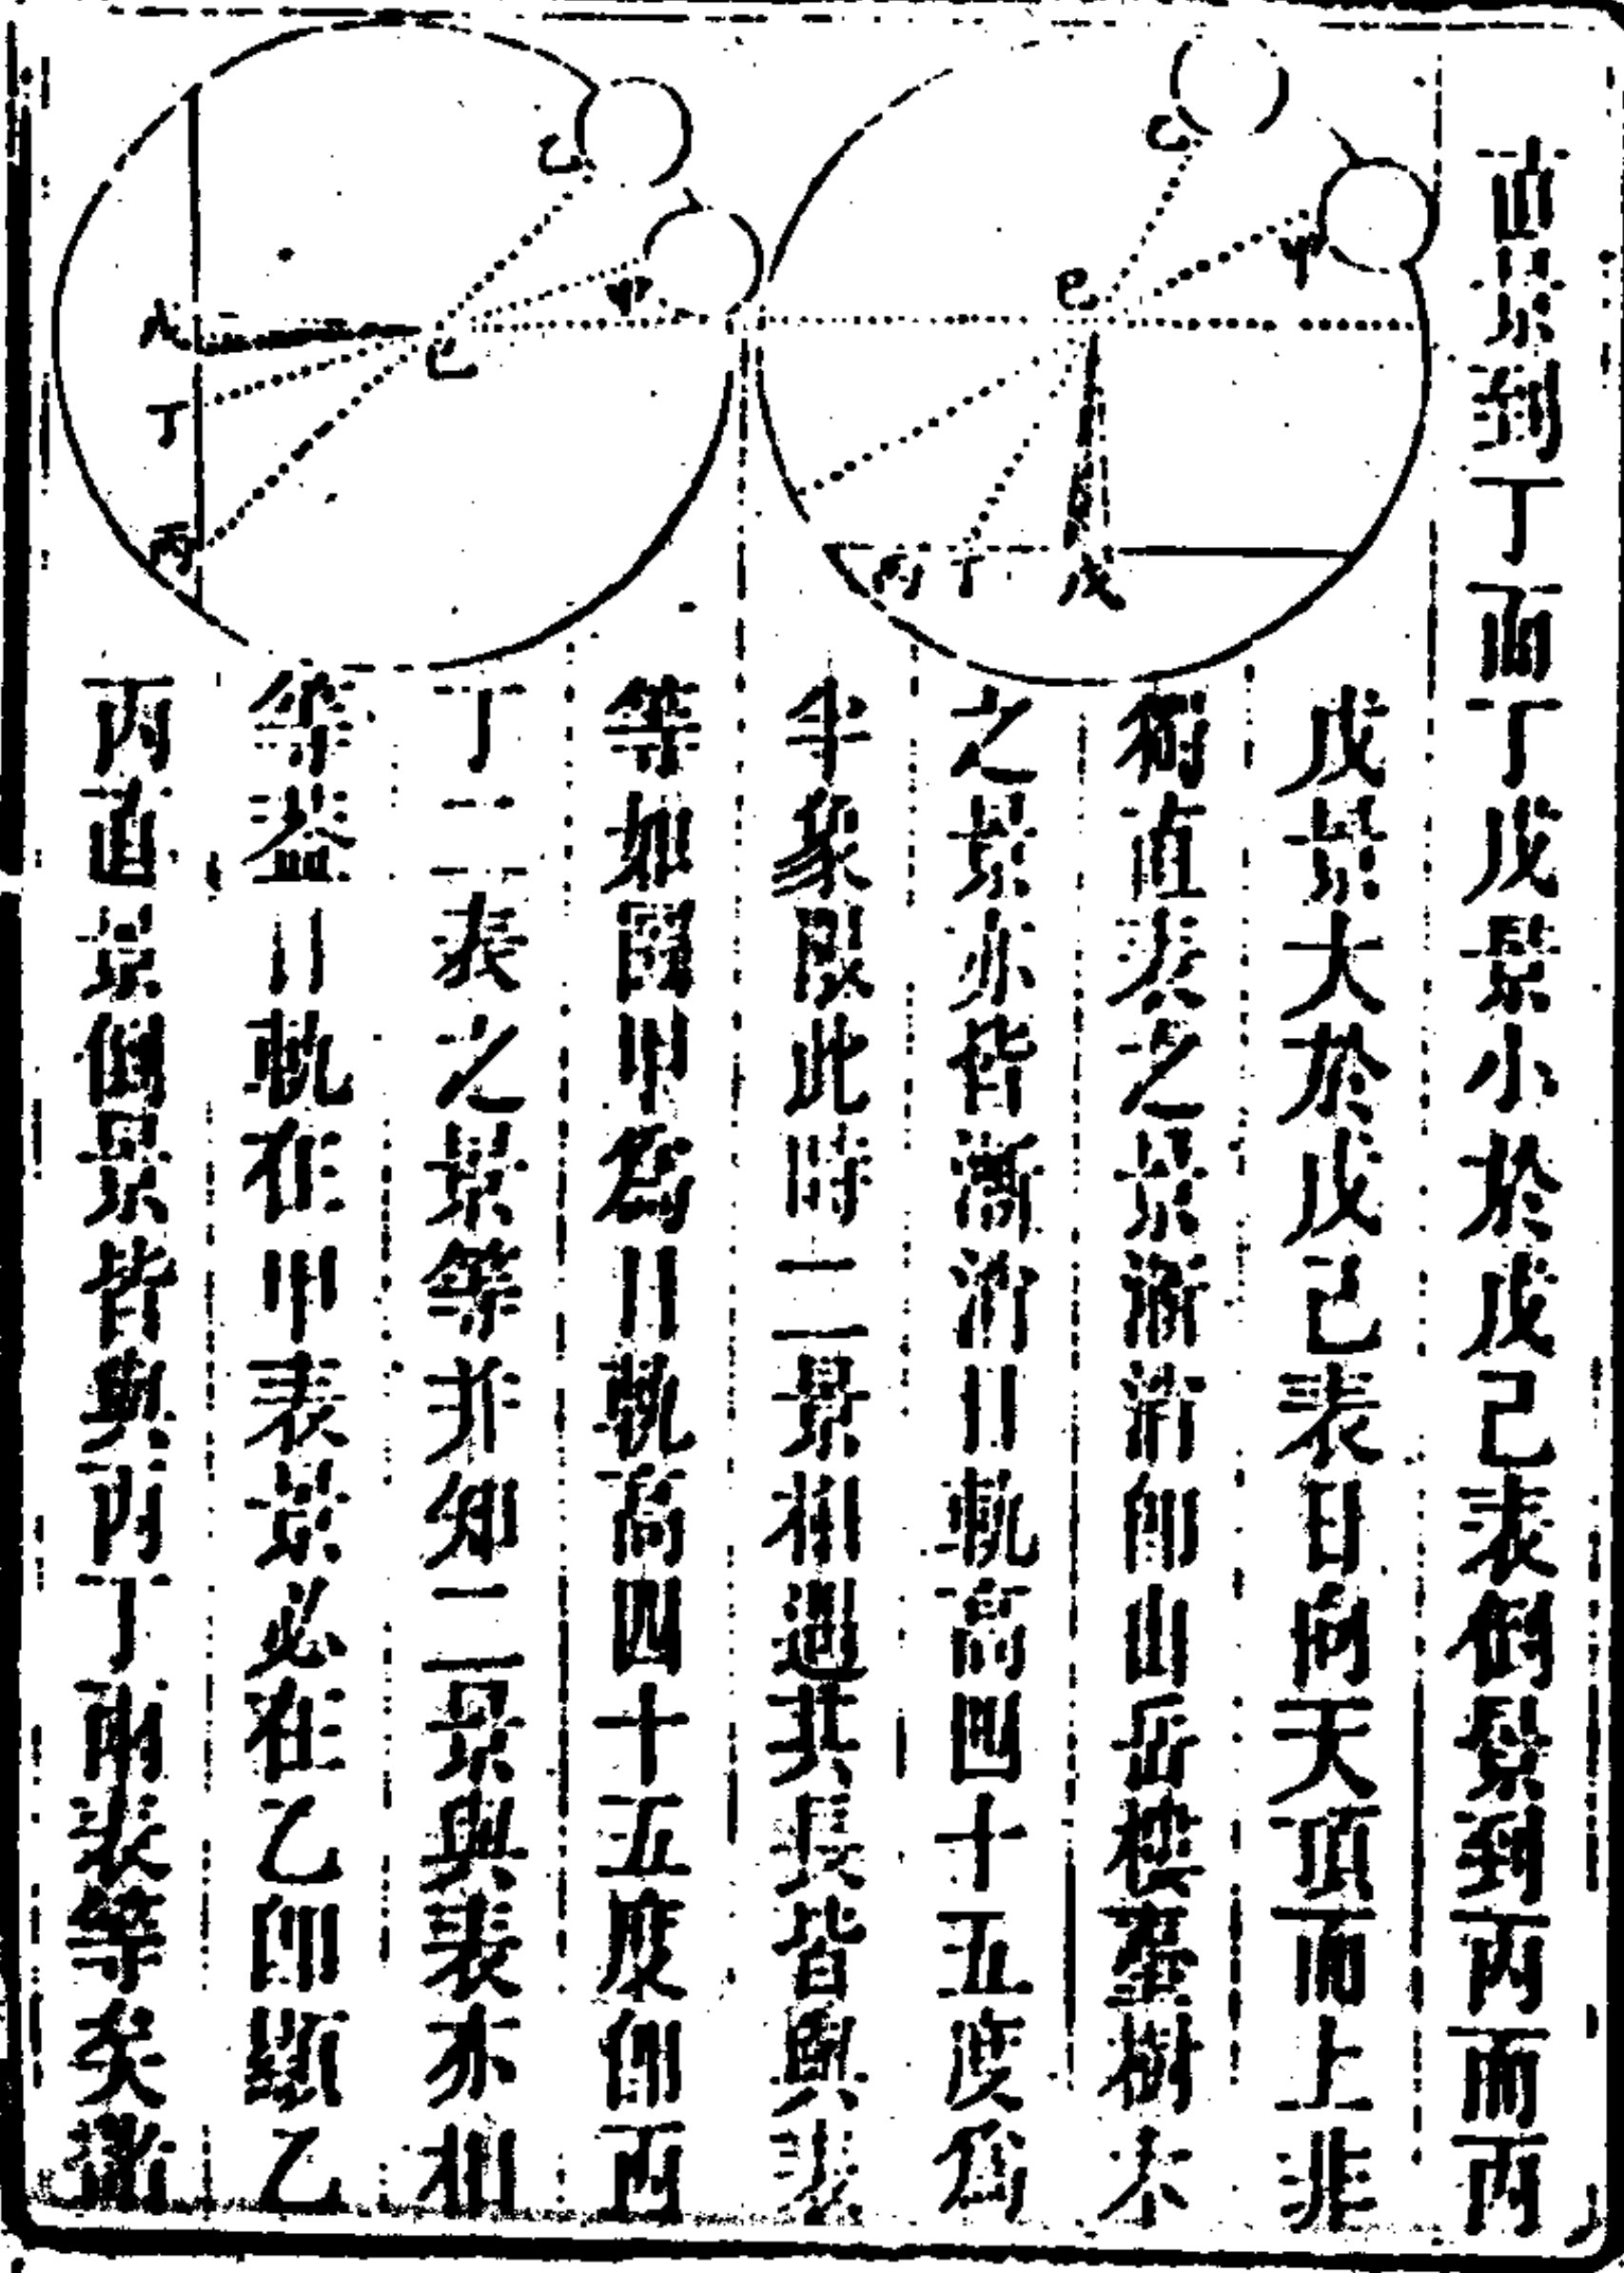 直景到丁而丁戊景小於戊己表倒景到丙而丙
戊景大於戊己表日向天頂而上非
獨直表之景漸消卽山岳樓臺樹木
之景亦皆漸消日軌高四十五度爲
半象限此時二景相遇其長皆與表
等如圖甲爲日軌高四十五度卽丙
丁二表之景等并知二景與表亦相
等盖日軌在甲表景必在乙卽顯乙
丙直景倒景皆與丙丁兩表等矣
乙
甲
己
丙
丁
戊
乙
甲
己
戊
丁
丙